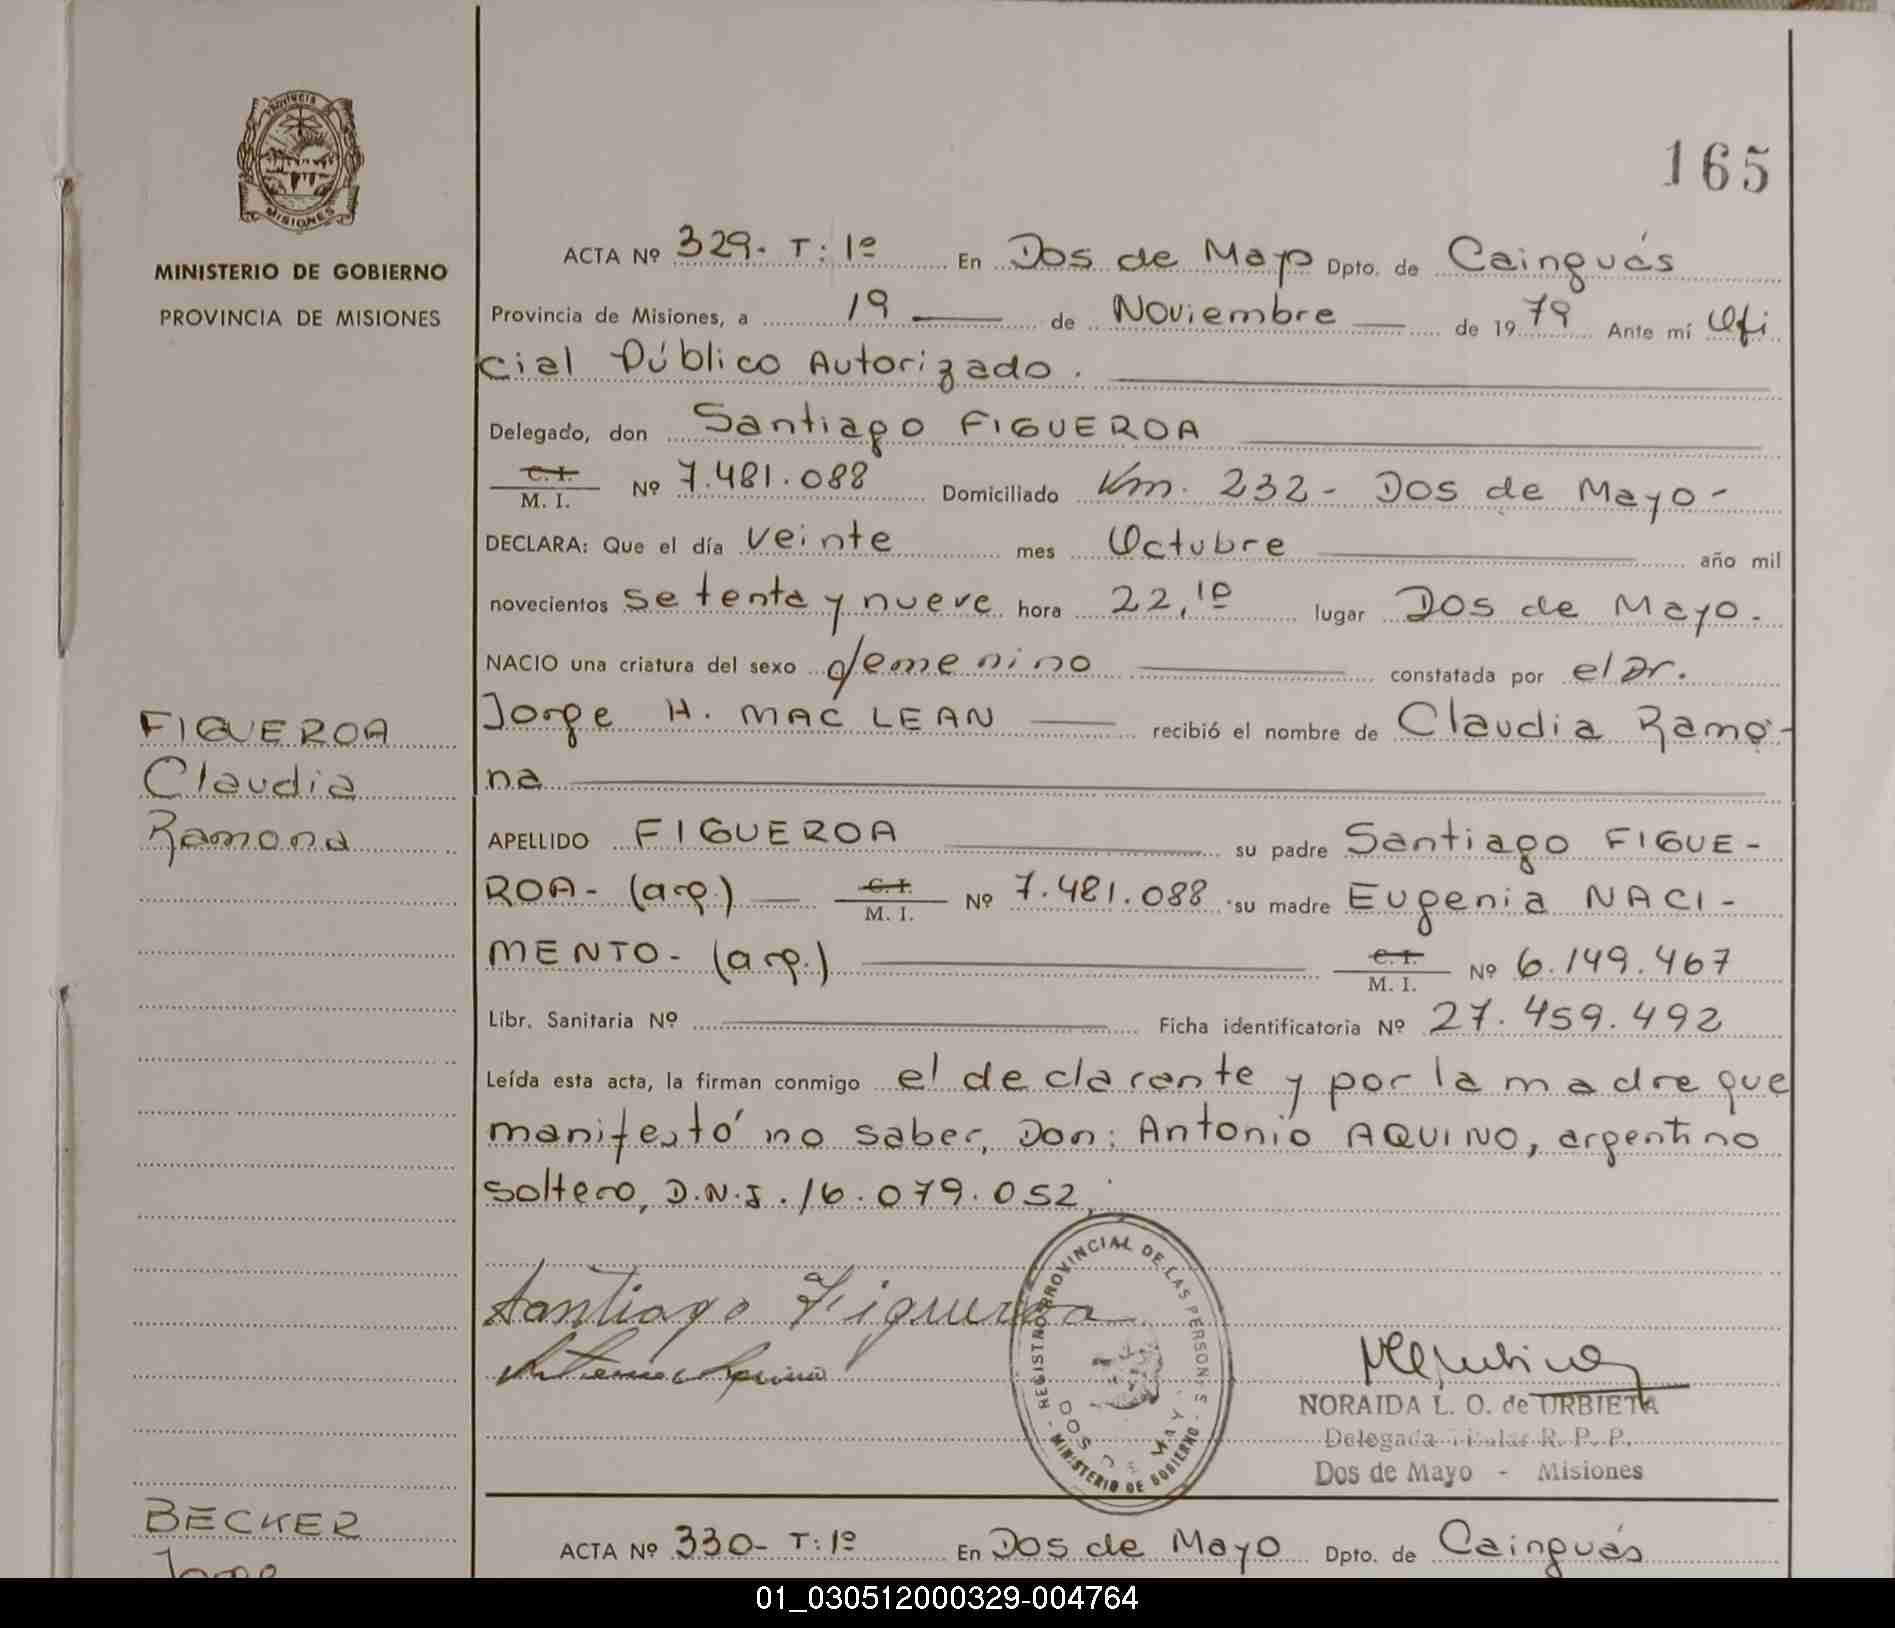 PROVINCIA
MISIONES
MINISTERIO DE GOBIERNO
PROVINCIA DE MISIONES
165
ACTA Nº 329- T: 1º En Dos de Mayo Dpto. de Cainguás
Provincia de Misiones, a 19 de Noviembre de 1979 Ante mí Ofi
cial Público Autorizado.
Delegado, don Santiago FIGUEROA
C. I.
M. I. Nº 7.481.088 Domiciliado Km. 232 - Dos de Mayo -
DECLARA: Que el día veinte mes Octubre año mil
novecientos setenta y nueve hora 22,10 lugar Dos de Mayo.
NACIO una criatura del sexo femenino constatada por el Dr.
Jorge H. MAC LEAN recibió el nombre de Claudia Ramo-
na
FIGUEROA
Claudia
Ramona
APELLIDO FIGUEROA su padre Santiago FIGUE-
ROA- (arg.) C. I.
M. I. Nº 7.481.088 su madre Eugenia NACI-
MENTO- (arg.) C. I.
M. I. Nº 6.149.467
Libr. Sanitaria Nº Ficha identificatoria Nº 27.459.492
Leída esta acta, la firman conmigo el declarante y por la madre que
manifestó no saber, Don: Antonio AQUINO, argentino
soltero, D.N.I. 16.079.052,
Santiago Figueroa
Antonio Aquino
REGISTRO PROVINCIAL DE LAS PERSONAS
MINISTERIO DE GOBIERNO
DOS DE MAYO
NORAIDA L. O. de URBIETA
Delegada Titular R. P. P.
Dos de Mayo - Misiones
BECKER
ACTA Nº 330- T: 1º En Dos de Mayo Dpto. de Cainguás
01_030512000329-004764